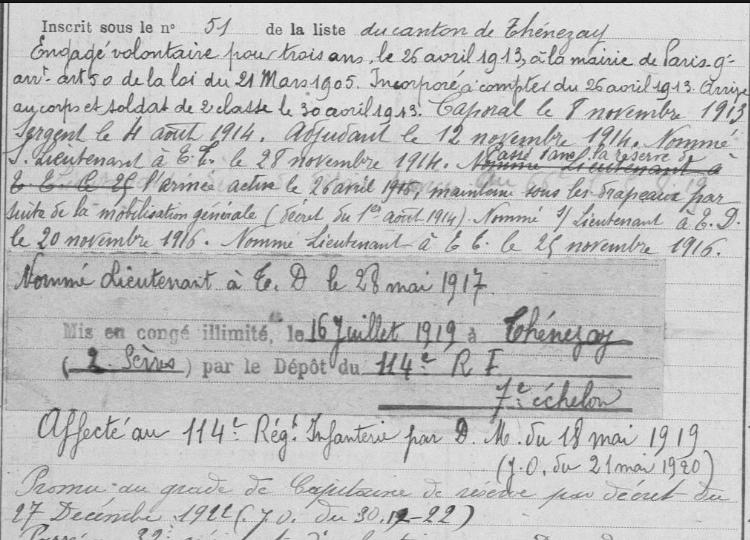 Inscrit sous le n° 51 de la liste du canton de Thénezay
Engagé volontaire pour trois ans, le 26 avril 1913, à la mairie de Paris 9e
arrt art 50 de la loi du 21 Mars 1905. Incorporé à compter du 26 avril 1913. Arrivé
au corps et soldat de 2e classe le 30 avril 1913. Caporal le 8 novembre 1913
Sergent le 4 août 1914. Adjudant le 12 novembre 1914. Nommé
S. Lieutenant à T. T. le 28 novembre 1914. Nommé Lieutenant à
Passé dans la réserve de
T. T. le 25 l'armée active le 26 avril 1916, maintenu sous les drapeaux par
suite de la mobilisation générale (décret du 1er août 1914). Nommé S/ Lieutenant à T. D.
le 20 novembre 1916. Nommé Lieutenant à T T. le 25 novembre 1916.
Nommé Lieutenant à T. D le 28 mai 1917
Mis en congé illimité, le 16 Juillet 1919 à Thénezay
(2 Sèvres) par le Dépôt du 114e R I
7e échelon
Affecté au 114e Régt Infanterie par D. M. du 18 mai 1919
(J.O. du 21 mai 1920)
Promu au grade de Capitaine de réserve par décret du
27 Décembre 1922 (J.O. du 30-12-22)